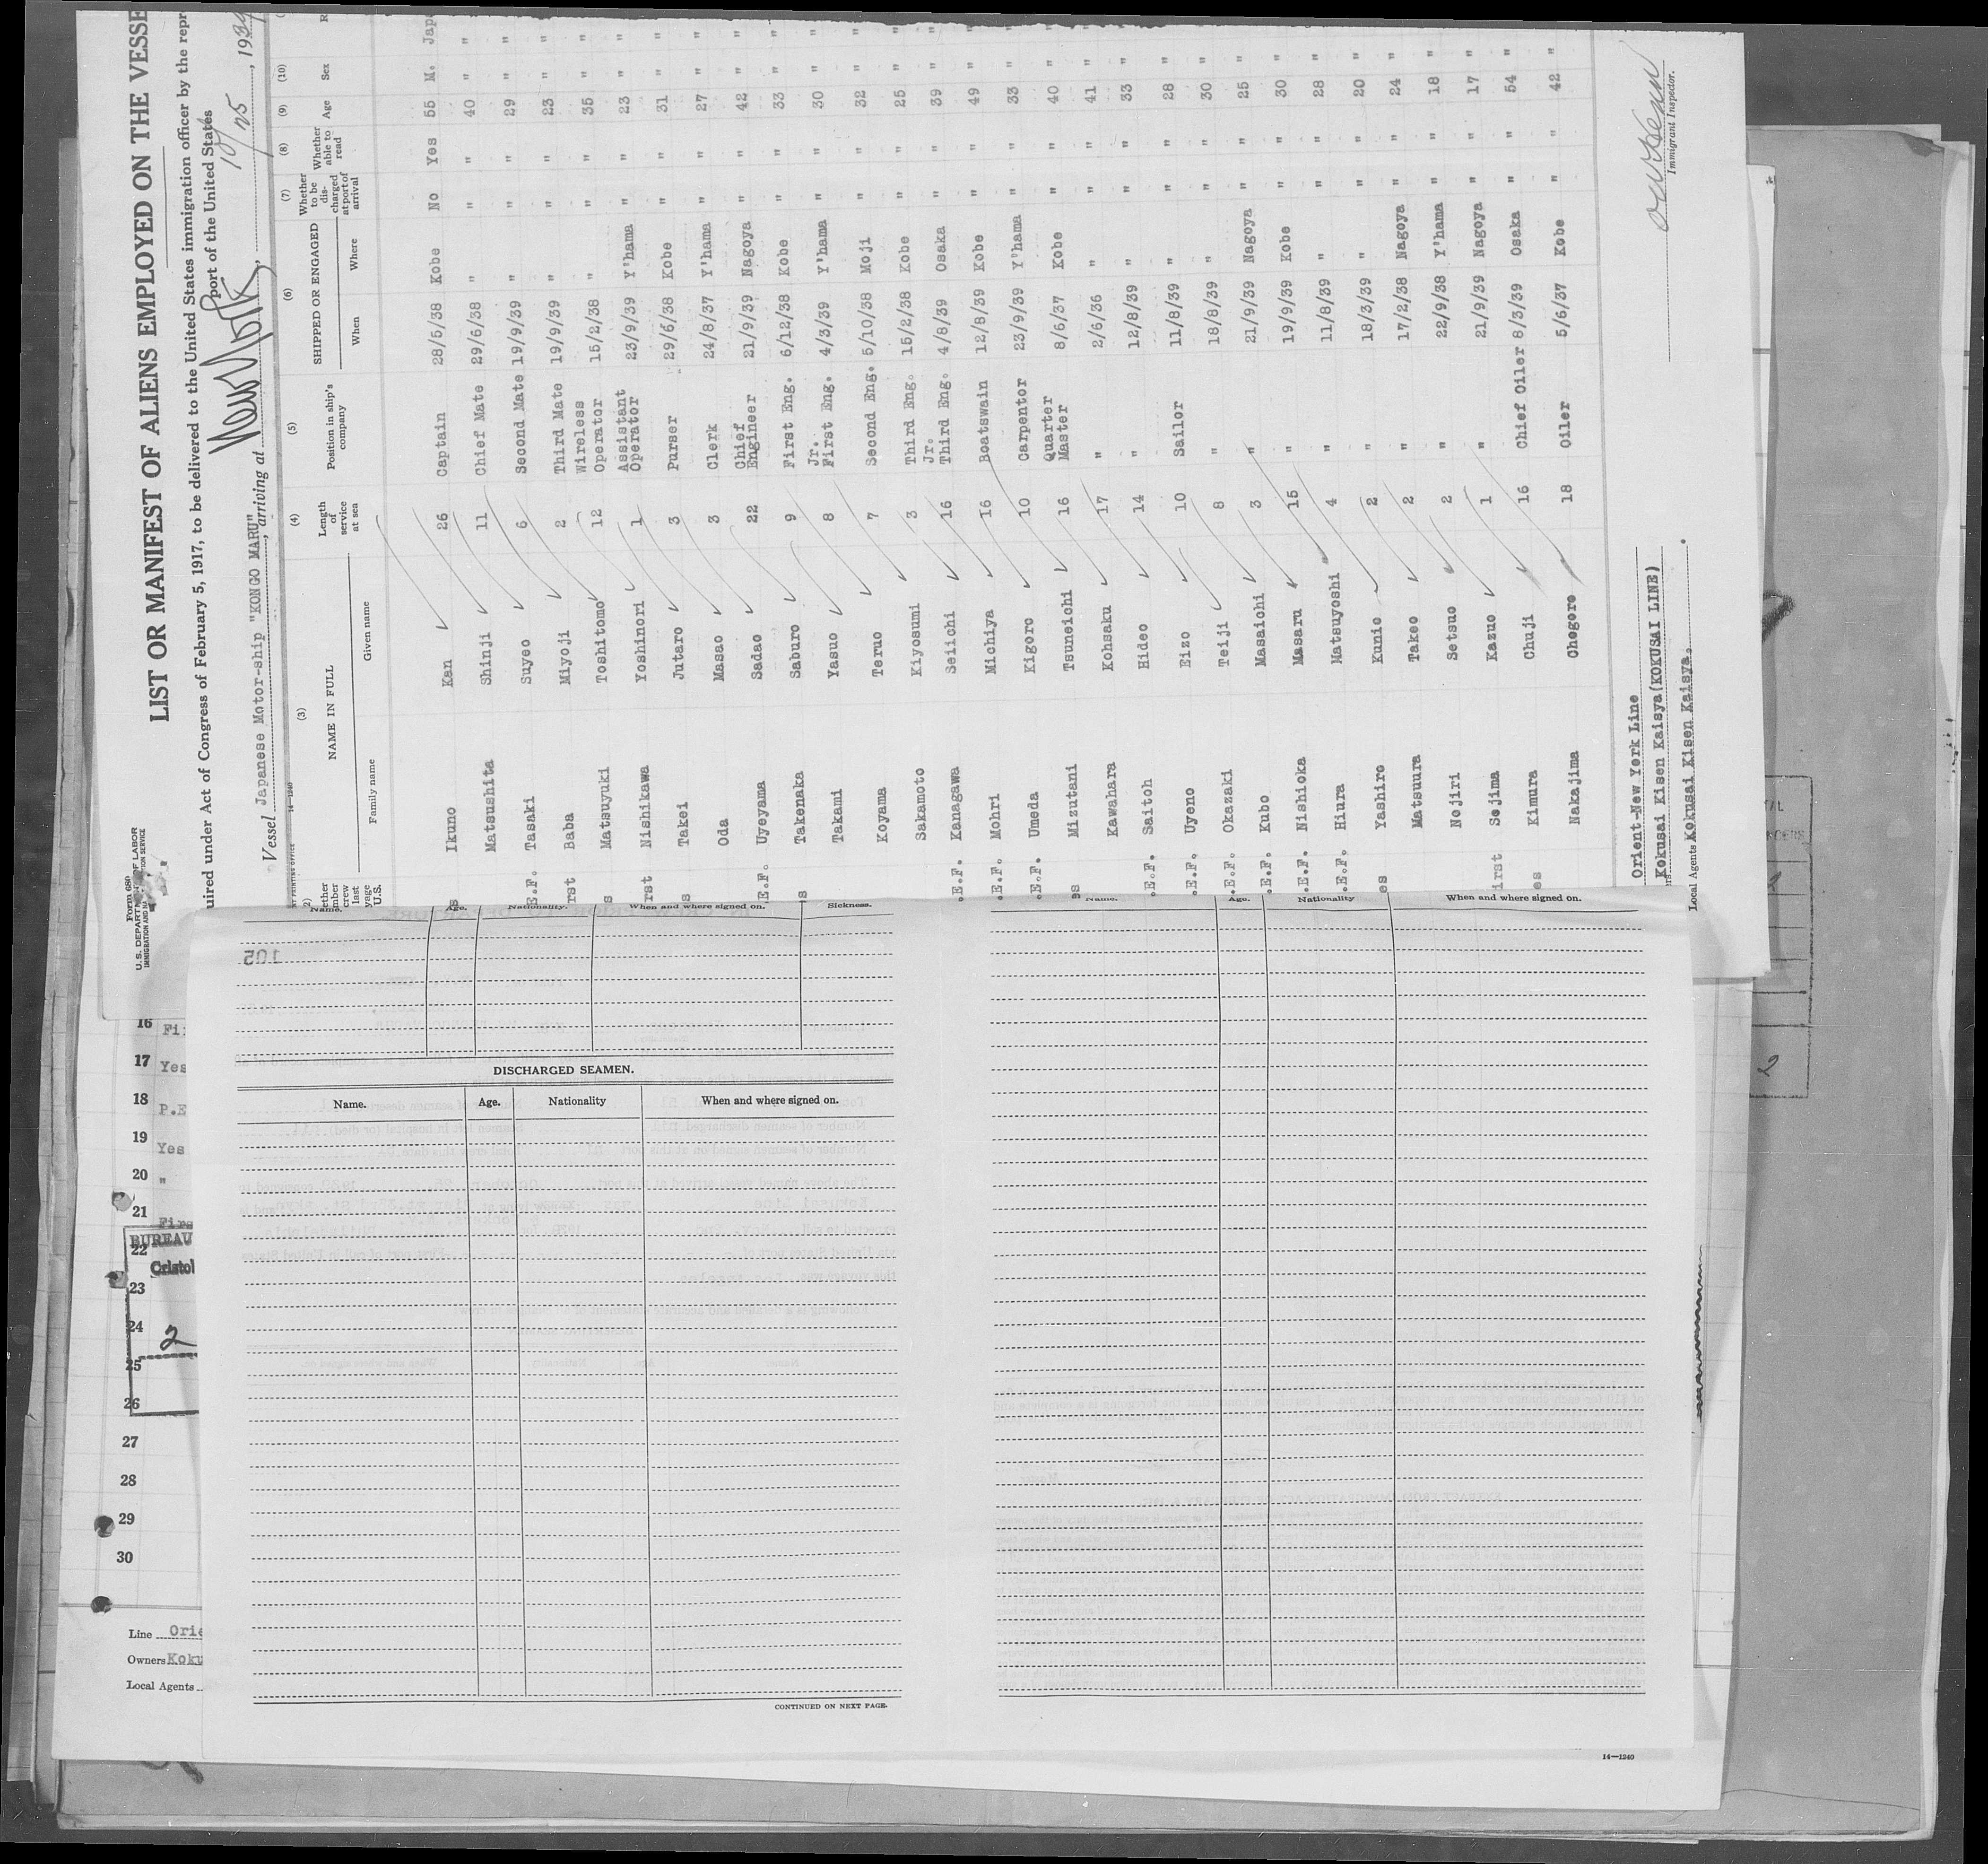 Form 680
U.S. DEPARTMENT OF LABOR
LIST OR MANIFEST OF ALIENS EMPLOYED ON THE VESSE
uired under Act of Congress of February 5, 1917, to be delivered to the United States immigration officer by the repr
port of the United States
Vessel Japanese Motor-ship "KONGO MARU", arriving at New York, 10/25, 1939
14—1240
(3) (4) (5) (6) (7) (8) (9) (10)
NAME IN FULL
Family name Given name
Length of service at sea
Position in ship's company
SHIPPED OR ENGAGED
When Where
Whether to be discharged at port of arrival
Whether able to read
Age
Sex
Ikuno Kan 26 Captain 28/6/38 Kobe No Yes 55 M. Jap
Matsushita Shinji 11 Chief Mate 29/6/38 " " " 40 " "
E.F. Tasaki Suyeo 6 Second Mate 19/9/39 " " " 29 " "
rst Baba Miyoji 2 Third Mate 19/9/39 " " " 23 " "
s Matsuyuki Toshitomo 12 Wireless Operator 15/2/38 " " " 35 " "
rst Nishikawa Yoshinori 1 Assistant Operator 23/9/39 Y'hama " " 23 " "
s Takei Jutaro 3 Purser 29/6/38 Kobe " " 31 " "
Oda Masao 3 Clerk 24/8/37 Y'hama " " 27 " "
E.F. Uyeyama Sadao 22 Chief Engineer 21/9/39 Nagoya " " 42 " "
s Takenaka Saburo 9 First Eng. 6/12/38 Kobe " " 33 " "
Takami Yasuo 8 Jr. First Eng. 4/3/39 Y'hama " " 30 " "
Koyama Teruo 7 Second Eng. 5/10/38 Moji " " 32 " "
Sakamoto Kiyosumi 3 Third Eng. 15/2/38 Kobe " " 25 " "
.E.F. Kanagawa Seiichi 16 Jr. Third Eng. 4/8/39 Osaka " " 39 " "
.E.F. Mohri Michiya 16 Boatswain 12/8/39 Kobe " " 49 " "
.E.F. Umeda Kigoro 10 Carpentor 23/9/39 Y'hama " " 33 " "
es Mizutani Tsuneichi 16 Quarter Master 8/6/37 Kobe " " 40 " "
Kawahara Kohsaku 17 " 2/6/36 " " " 41 " "
.E.F. Saitoh Hideo 14 " 12/8/39 " " " 33 " "
.E.F. Uyeno Eizo 10 Sailor 11/8/39 " " " 28 " "
.E.F. Okazaki Teiji 8 " 18/8/39 " " " 30 " "
.E.F. Kubo Masaichi 3 " 21/9/39 Nagoya " " 25 " "
.E.F. Nishioka Masaru 15 " 19/9/39 Kobe " " 30 " "
.E.F. Hiura Matsuyoshi 4 " 11/8/39 " " " 28 " "
es Yashiro Kunio 2 " 18/3/39 " " " 20 " "
Matsuura Takeo 2 " 17/2/38 Nagoya " " 24 " "
Nojiri Setsuo 2 " 22/9/38 Y'hama " " 18 " "
irst Sojima Kazuo 1 " 21/9/39 Nagoya " " 17 " "
es Kimura Chuji 16 Chief Oiler 8/3/39 Osaka " " 54 " "
Nakajima Chogoro 18 Oiler 5/6/37 Kobe " " 42 " "
Orient-New York Line
Kokusai Kisen Kaisya(KOKUSAI LINE)
Local Agents Kokusai Kisen Kaisya.
Immigrant Inspector.
Name. Age. Nationality. When and where signed on. Sickness.
105
DISCHARGED SEAMEN.
Name. Age. Nationality When and where signed on.
CONTINUED ON NEXT PAGE.
Name. Age. Nationality When and where signed on.
14—1240
16 Fi
17 Yes
18 P.E
19 Yes
20 "
21 Firs
BUREAU
22
Cristo
23
24
2
25
26
27
28
29
30
Line Orie
Owners Koku
Local Agents
2
2